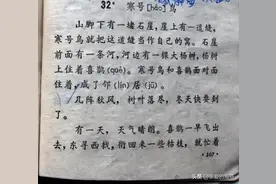 32* 寒号[háo]鸟
山脚下有一堵石崖，崖上有一道缝，
寒号鸟就把这道缝当作自己的窝。石崖
前面有一条河，河边有一棵大杨树，杨树
上住着喜鹊(què)。寒号鸟和喜鹊面对面
住着，成了邻(lín)居(jū)。
几阵秋风，树叶落尽，冬天快要到
了。
有一天，天气晴朗。喜鹊一早飞出
去，东寻西找，衔回来一些枯枝，就忙着